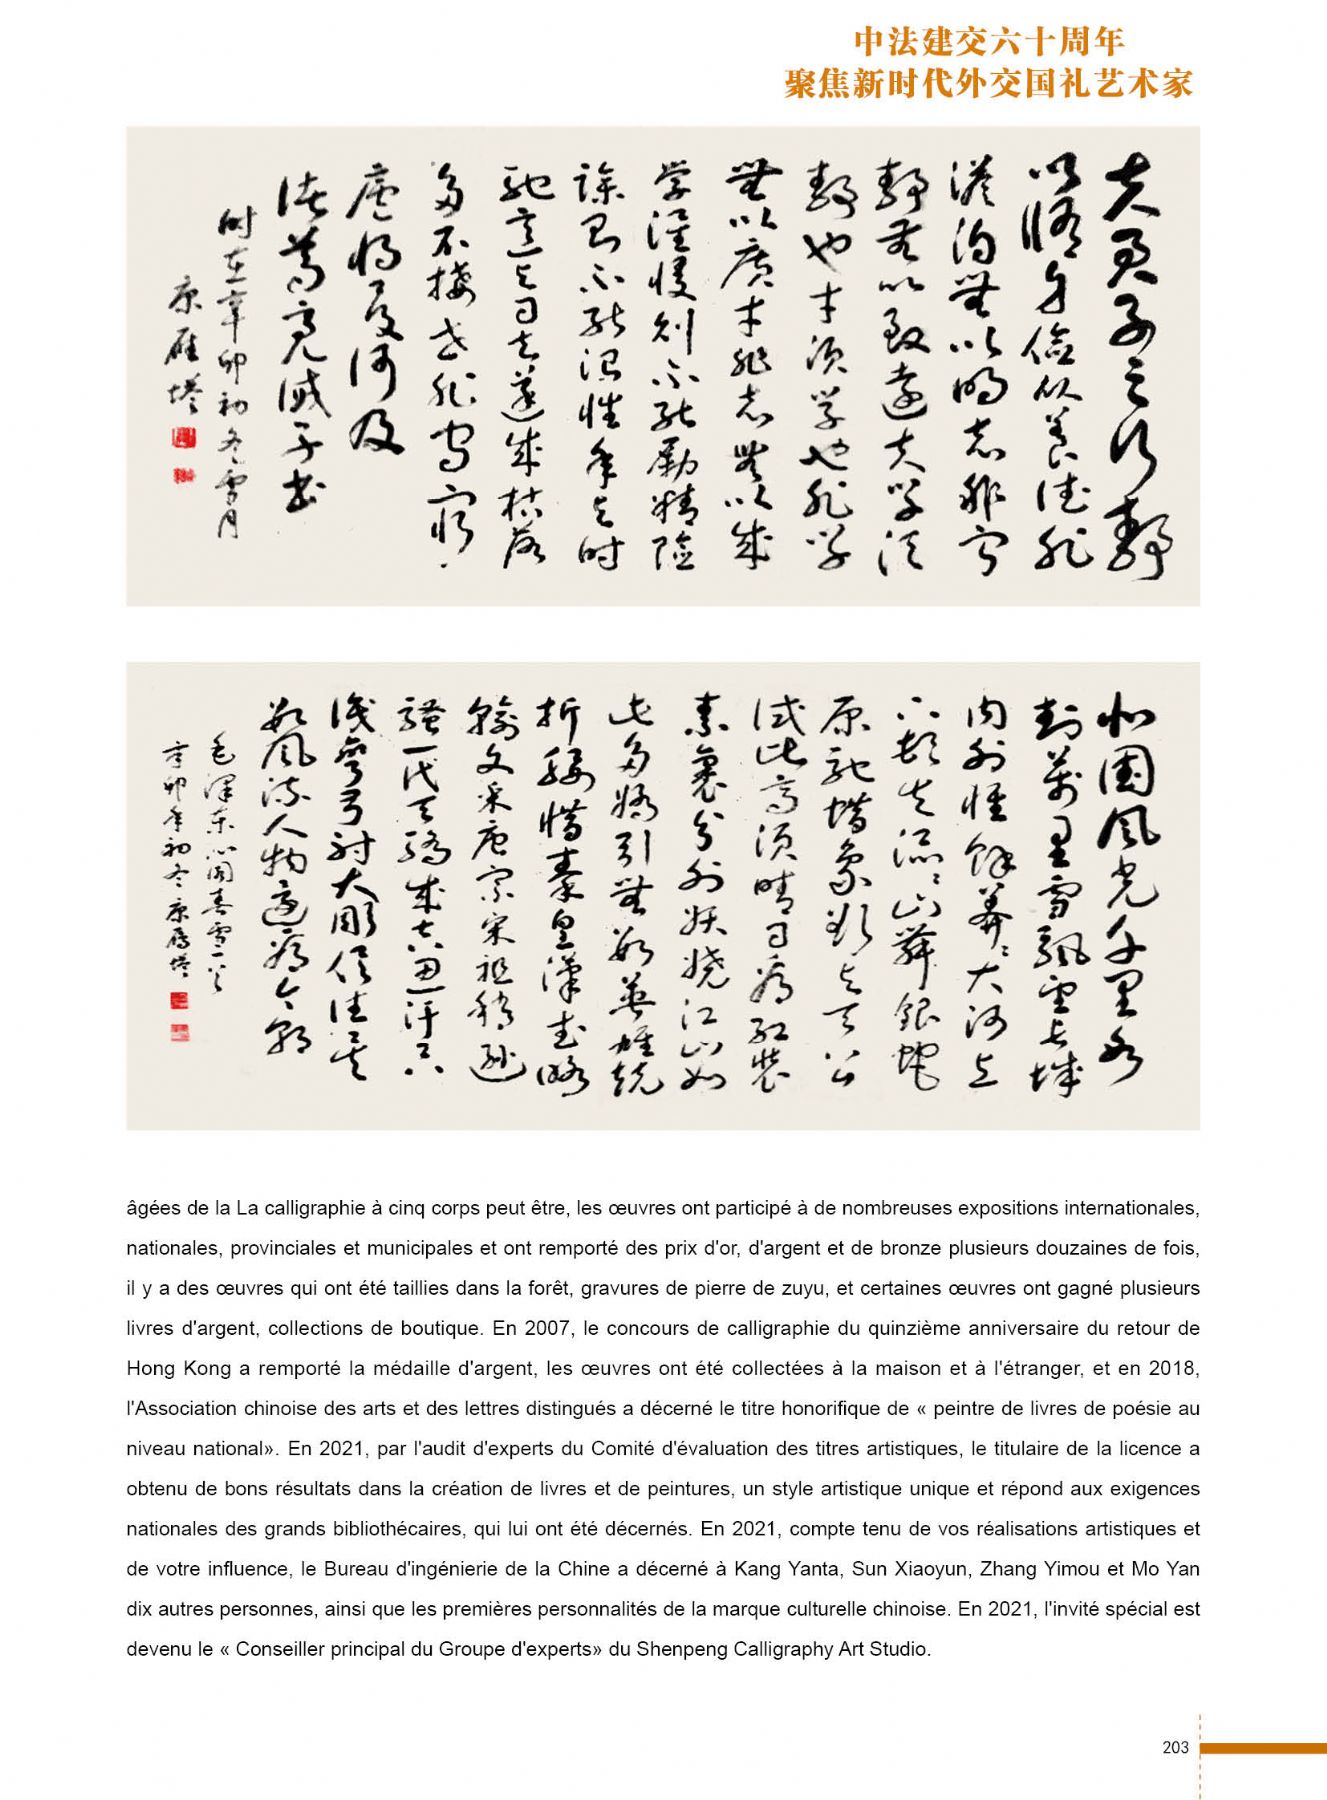 中法建交六十周年
聚焦新时代外交国礼艺术家
夫君子之行静
以修身俭以养德非
澹泊無以明志非宁
静无以致远夫学须
静也才须学也非学
無以广才非志無以成
学淫慢则不能励精险
躁则不能治性年与时
驰意与日去遂成枯落
多不接世悲守穷
庐将复何及
诸葛亮诫子书
时在辛卯初冬雪月
康雁塔
北国风光千里冰
封万里雪飘望长城
内外惟馀莽莽大河上
下顿失滔滔山舞银蛇
原驰蜡象欲与天公
试比高须晴日看红装
素裹分外妖娆江山如
此多娇引無数英雄竞
折腰惜秦皇汉武略
输文采唐宗宋祖稍逊
骚一代天骄成吉思汗只
识弯弓射大雕俱往矣
数风流人物还看今朝
毛泽东沁园春雪一首
辛卯年初冬康雁塔
âgées de la La calligraphie à cinq corps peut être, les œuvres ont participé à de nombreuses expositions internationales,
nationales, provinciales et municipales et ont remporté des prix d'or, d'argent et de bronze plusieurs douzaines de fois,
il y a des œuvres qui ont été taillies dans la forêt, gravures de pierre de zuyu, et certaines œuvres ont gagné plusieurs
livres d'argent, collections de boutique. En 2007, le concours de calligraphie du quinzième anniversaire du retour de
Hong Kong a remporté la médaille d'argent, les œuvres ont été collectées à la maison et à l'étranger, et en 2018,
l'Association chinoise des arts et des lettres distingués a décerné le titre honorifique de « peintre de livres de poésie au
niveau national». En 2021, par l'audit d'experts du Comité d'évaluation des titres artistiques, le titulaire de la licence a
obtenu de bons résultats dans la création de livres et de peintures, un style artistique unique et répond aux exigences
nationales des grands bibliothécaires, qui lui ont été décernés. En 2021, compte tenu de vos réalisations artistiques et
de votre influence, le Bureau d'ingénierie de la Chine a décerné à Kang Yanta, Sun Xiaoyun, Zhang Yimou et Mo Yan
dix autres personnes, ainsi que les premières personnalités de la marque culturelle chinoise. En 2021, l'invité spécial est
devenu le « Conseiller principal du Groupe d'experts» du Shenpeng Calligraphy Art Studio.
203